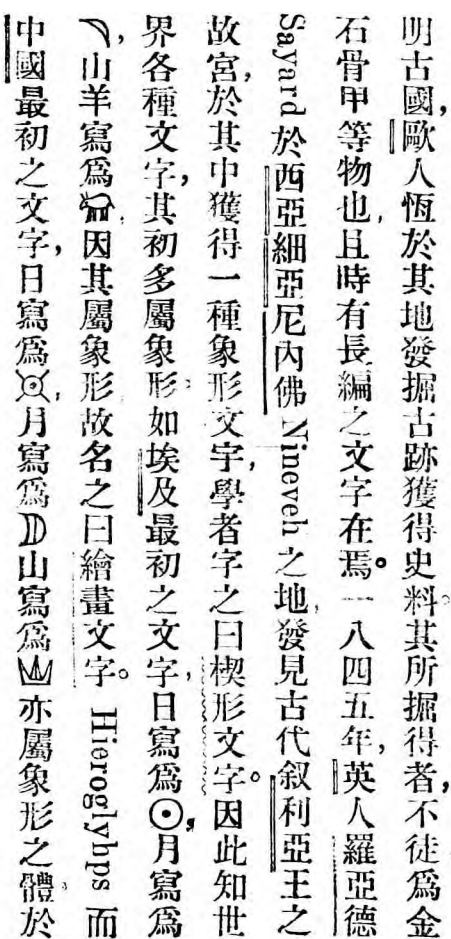 明古國，歐人恆於其地發掘古跡獲得史料。其所掘得者，不徒爲金
石骨甲等物也，且時有長編之文字在焉。一八四五年，英人羅亞德
Sayard 於西亞細亞尼內佛 Nineveh 之地，發見古代叙利亞王之
故宮，於其中獲得一種象形文字，學者字之曰楔形文字。因此知世
界各種文字，其初多屬象形。如埃及最初之文字，日寫爲☉，月寫爲
，山羊寫爲，因其屬象形，故名之曰繪畫文字。Hieroglyhps 而
中國最初之文字，日寫爲，月寫爲，山寫爲，亦屬象形之體。於